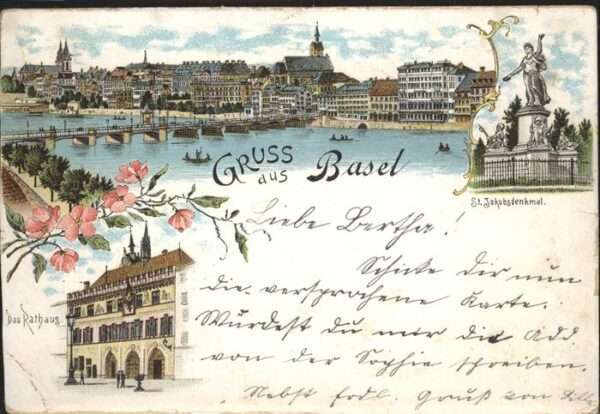 Gruss
aus Basel
St. Jakobsdenkmal.
Das Rathaus.
Liebe Bertha!
Schicke dir nun
die versprochene Karte.
Würdest du mir die Add.
von der Sophie schreiben.
Nebst frdl. Gruß von